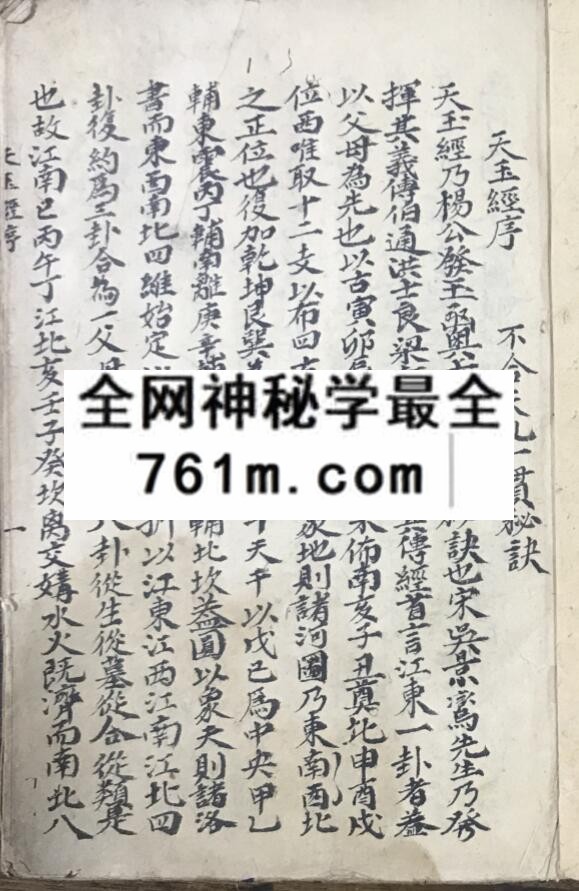 天玉經序 不 一貫秘訣
天玉經乃楊公發玉函奧 訣也宋吳景鸞先生乃發
揮其義傳伯通洪士良梁 傳經首言江東一卦者蓋
以父母為先也以古寅卯 佈南亥子丑奠北申酉戌
位西唯取十二支以布四 象地則諸河圖乃東南西北
之正位也復加乾坤艮巽 十天干以戊己爲中央甲乙
輔東震丙丁輔南離庚辛 輔北坎蓋圓以象天則諸洛
書而東西南北四維始定 折以江東江西江南江北四
卦復約爲三卦合為一父母 八卦從生從墓從合從類是
也故江南巳丙午丁江北亥壬子癸坎离交媾水火既濟而南北八
天玉經序 一
全网神秘学最全
761m.com